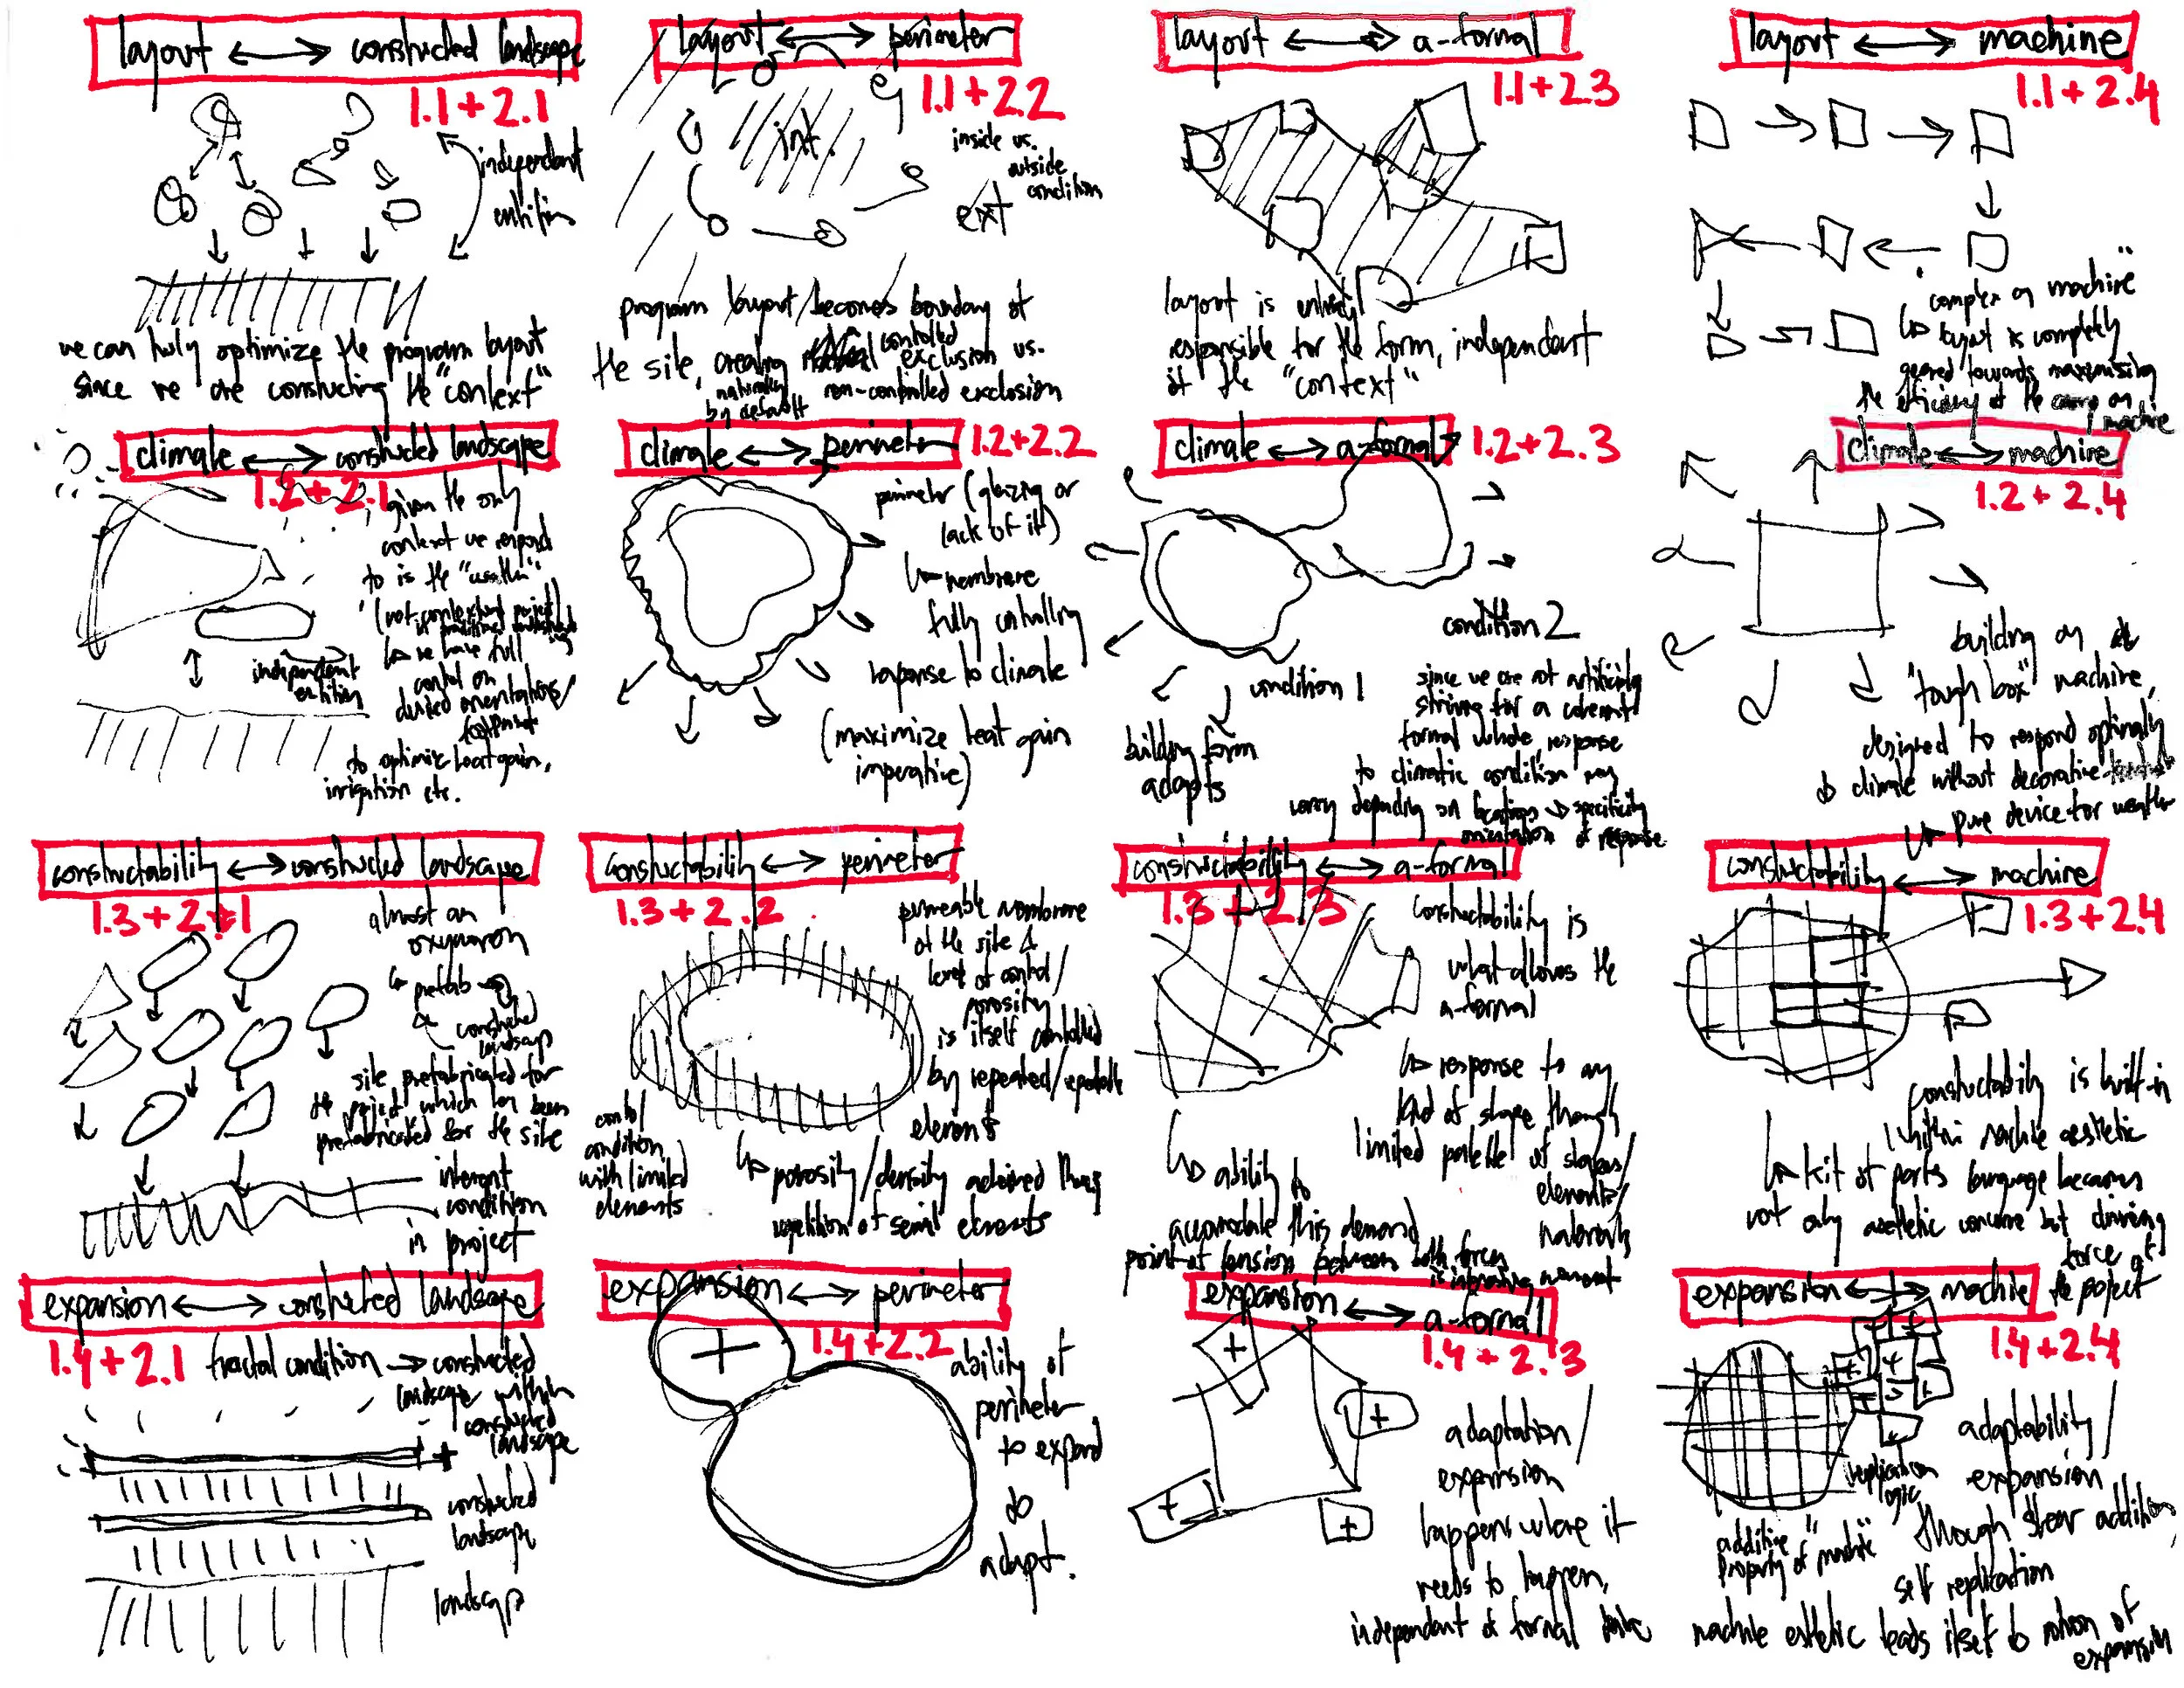 layout ↔ constructed landscape
1.1 + 2.1
independant
entities
we can fully optimize the program layout
since we are constructing the "context"
layout ↔ perimeter
1.1 + 2.2
int.
inside vs.
outside
condition
ext
program layout becomes boundary of
the site, creating controlled exclusion vs.
naturally non-controlled exclusion
by default
layout ↔ a-formal
1.1 + 2.3
layout is entirely
responsible for the form, independant
of the "context"
layout ↔ machine
1.1 + 2.4
"complex as machine"
↳ layout is completely
geared towards maximising
the efficiency of the as
machine
climate ↔ constructed landscape
1.2 + 2.1
given the only
context we respond
to is the "weather"
(not contextual project)
in traditional
↳ we have full
control on
desired orientations/
footprint
to optimize heat gain,
irrigation etc.
independent
entities
climate ↔ perimeter
1.2 + 2.2
perimeter (glazing or
lack of it)
↳ membrane
fully controlling
response to climate
(maximize heat gain
imperative)
climate ↔ a-formal
1.2 + 2.3
condition 2
condition 1
building form
adapts
since we are not artificially
striving for a coherent
formal whole, response
to climatic condition may
vary depending on locations → specificity
orientation of response
climate ↔ machine
1.2 + 2.4
building as
"tough box" machine,
designed to respond optimally
to climate without decorative
↳ pure device for weather
constructability ↔ constructed landscape
1.3 + 2.1
almost an
oxymoron
↳ prefab
constructed
landscape
site prefabricated for
the project which has been
prefabricated for the site
inherent
condition
in project
constructability ↔ perimeter
1.3 + 2.2
permeable membrane
of the site &
level of control/
porosity
is itself controlled
by repeated/repeatable
elements
control
condition
with limited
elements
↳ porosity/density achieved through
repetition of elements
constructability ↔ a-formal
1.3 + 2.3
constructability is
what allows the
a-formal
↳ response to any
kind of shape through
limited palette of shapes/
elements/
materials
↳ ability to
accomodate this demand
point of tension between both forces
is interesting moment
constructability ↔ machine
1.3 + 2.4
constructability is built-in
within machine aesthetic
↳ kit of parts language becomes
not only aesthetic concern but driving
force of
the project
expansion ↔ constructed landscape
1.4 + 2.1
fractal condition → constructed
landscape within
constructed
landscape
+
constructed
landscape
landscape
expansion ↔ perimeter
1.4 + 2.2
+
ability of
perimeter
to expand
to
adapt.
expansion ↔ a-formal
1.4 + 2.3
+
+
+
+
adaptation/
expansion
happens where it
needs to happen,
independant of formal
expansion ↔ machine
1.4 + 2.4
replication
logic
additive
property of "machine"
adaptability/
expansion
though shear addition,
self replication
machine esthetic leads itself to notion of
expansion